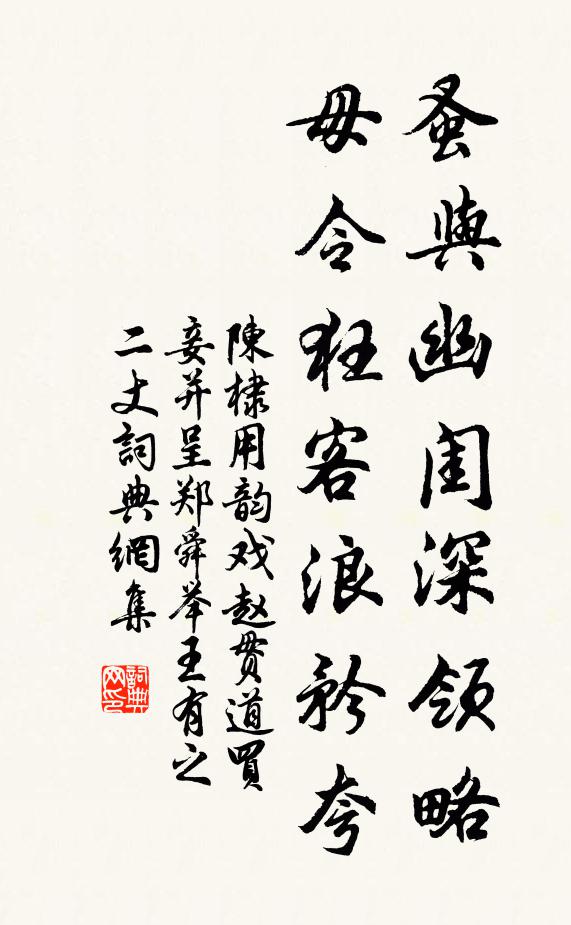 蚤與幽闺深領略
毋令狂客浪矜夸
陳棣用韵戏赵贯道買
妾并呈郑舜举王有之
二丈詞典網集
詞典网印